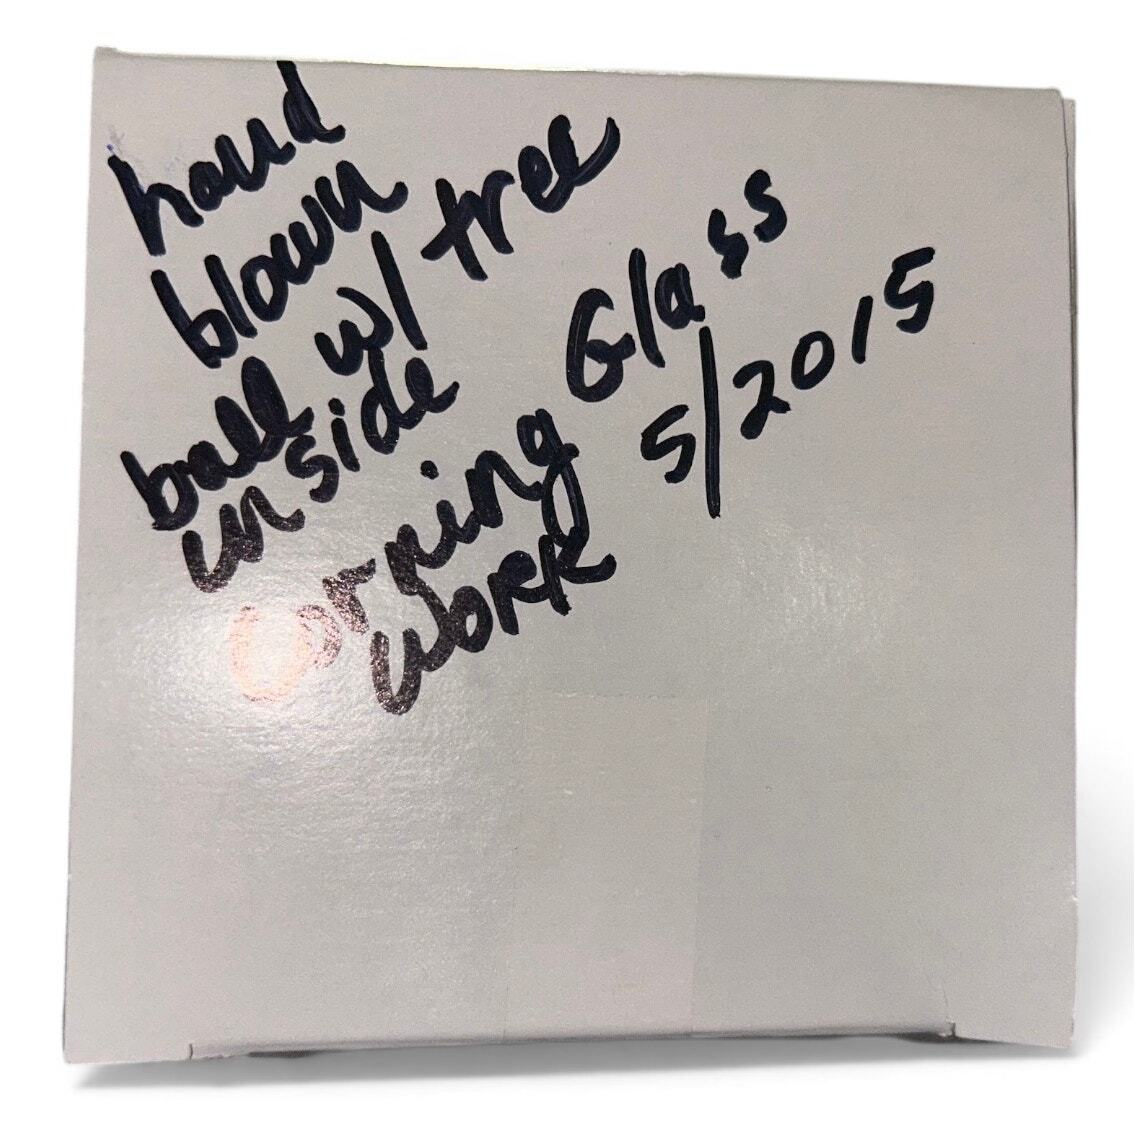 hand
blown
ball w/ tree
inside
Corning Glass
Work 5/2015